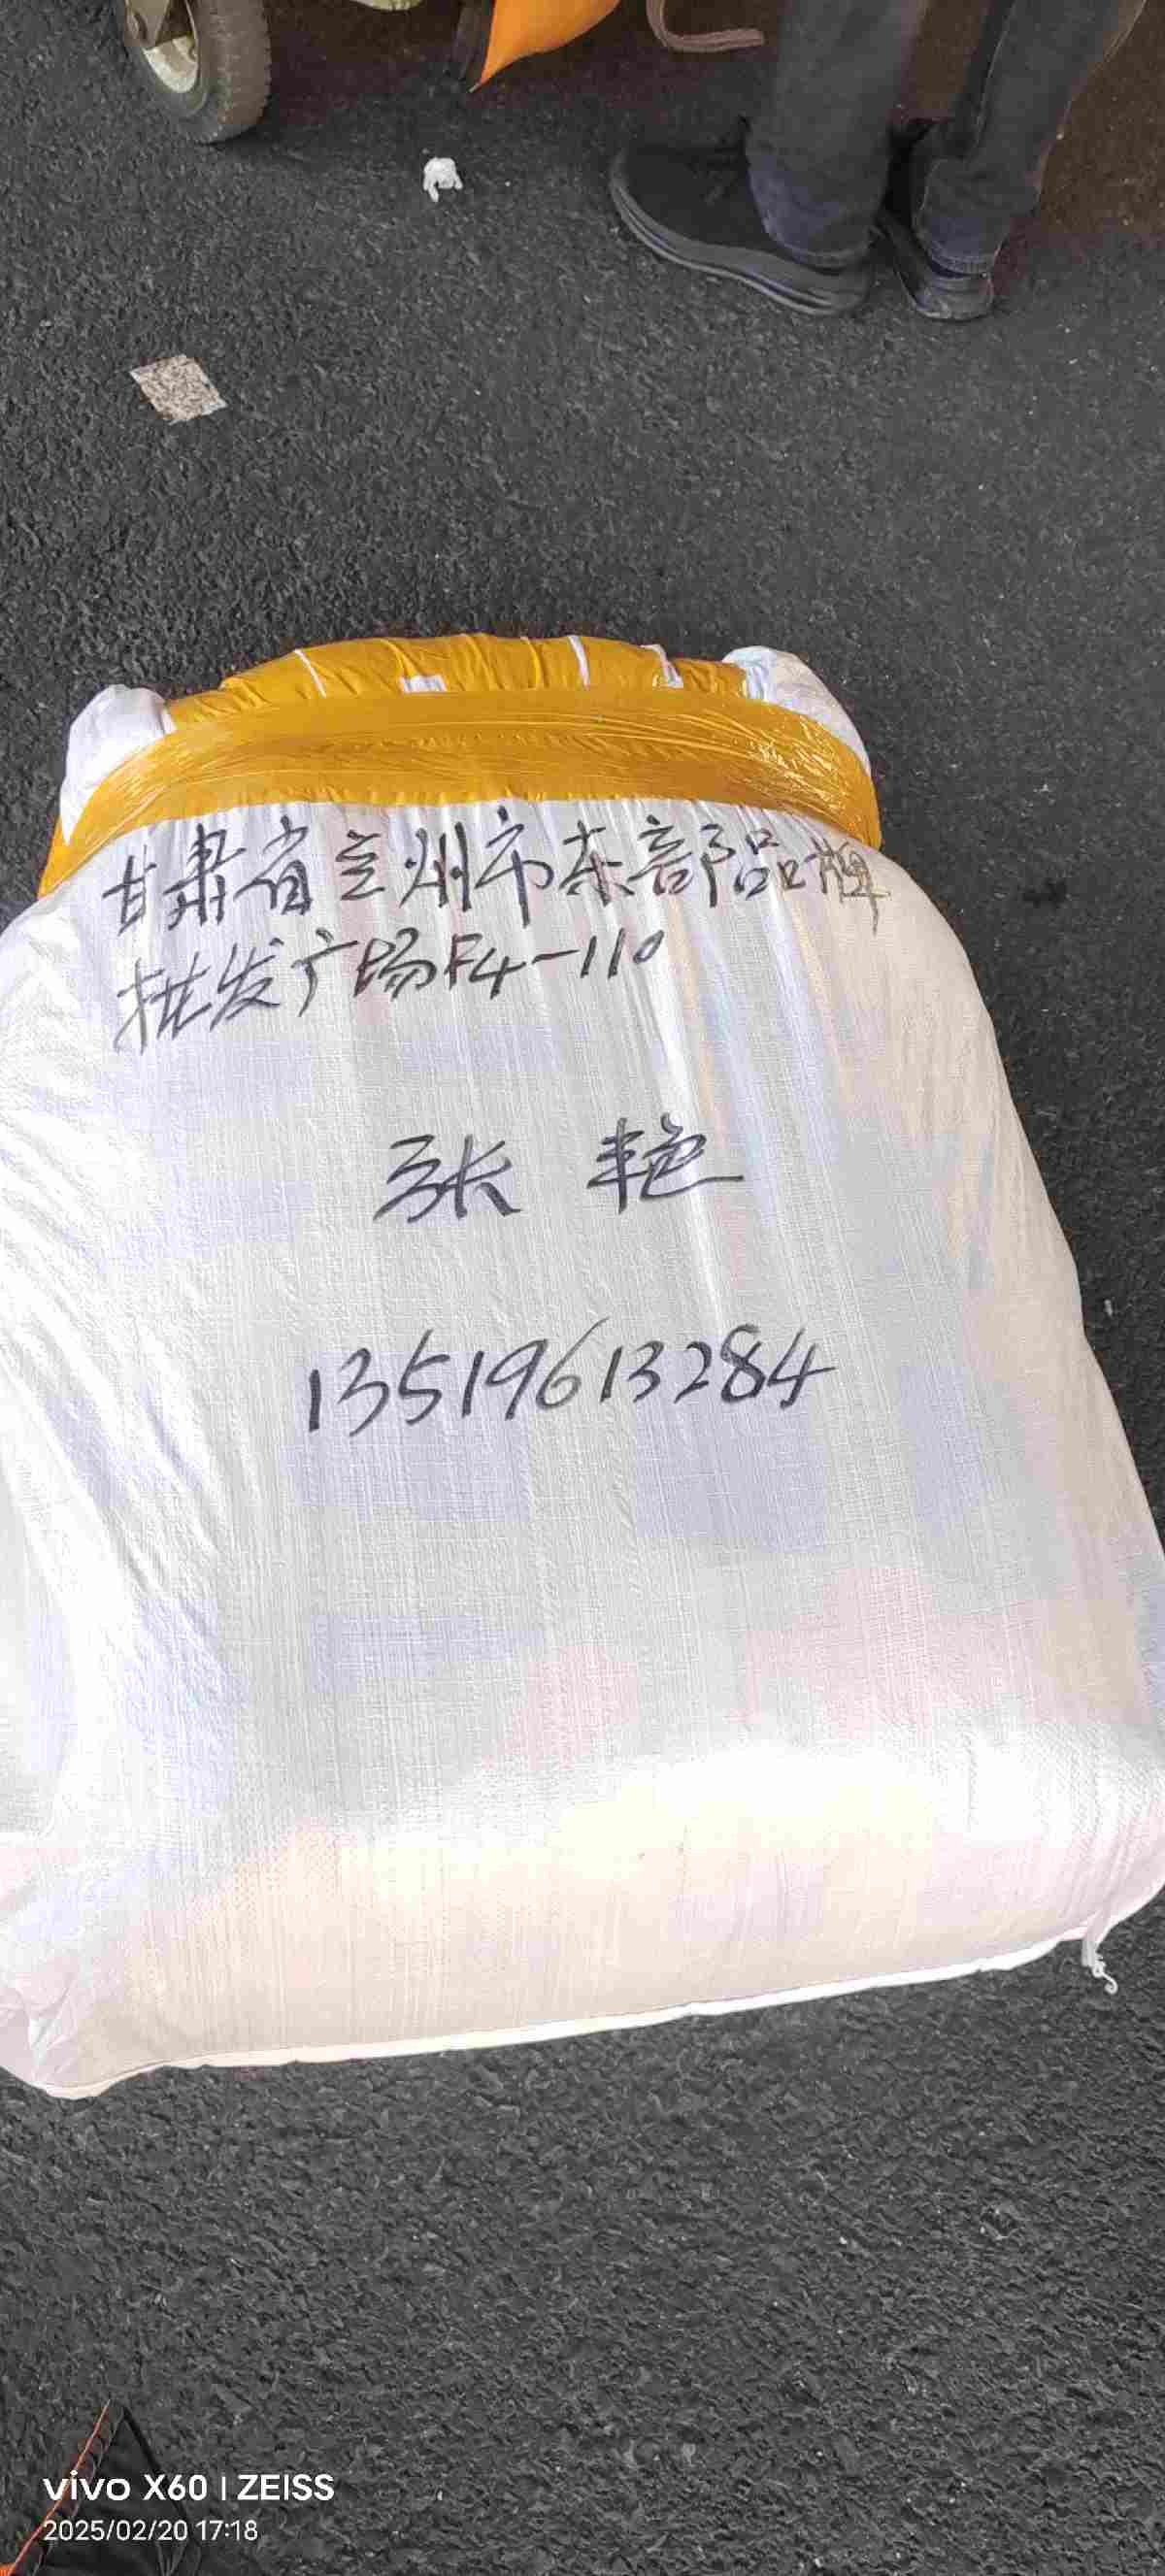 甘肃省兰州市东部品牌
批发广场F4-110
张 艳
13519613284
vivo X60 | ZEISS
2025/02/20 17:18